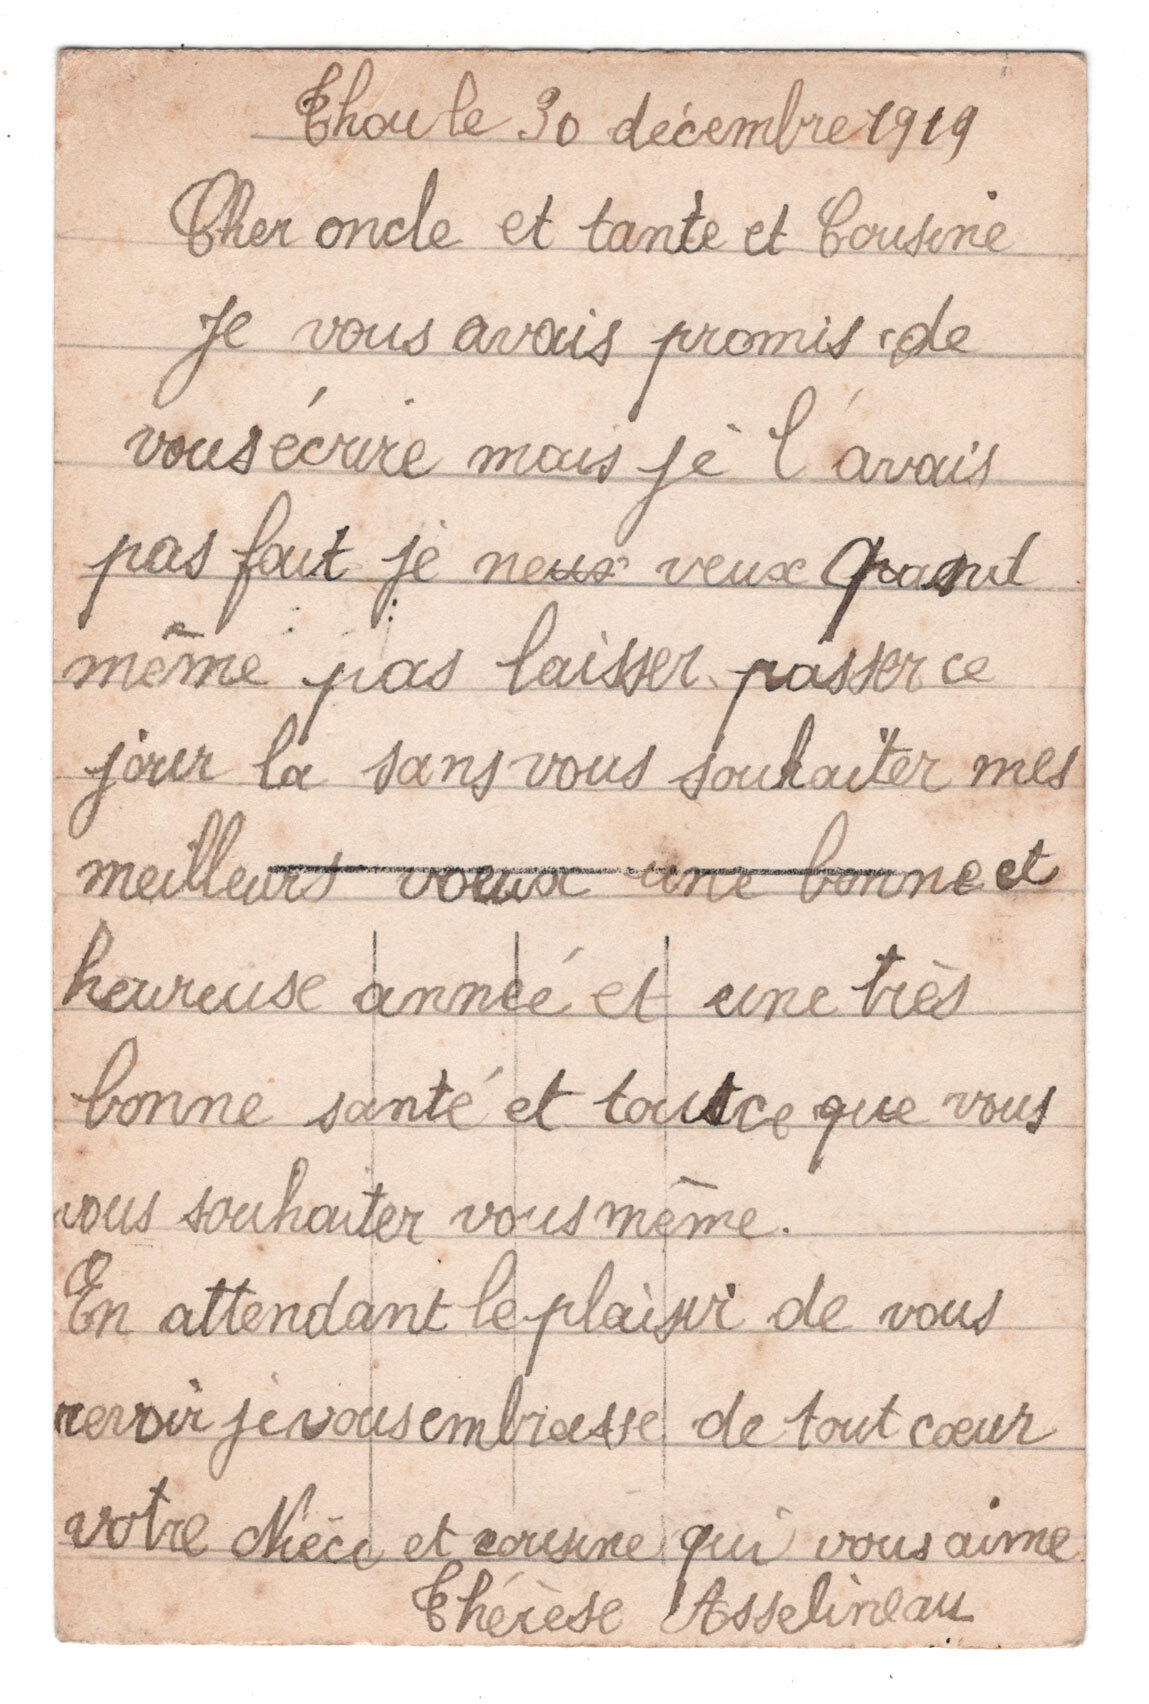 Thou le 30 décembre 1919
Cher oncle et tante et Cousine
Je vous avais promis de
vous écrire mais je l'avais
pas fait je neux veux Quand
même pas laisser passer ce
jour la sans vous souhaiter mes
meilleurs voeux une bonne et
heureuse année et une très
bonne santé et tout ce que vous
vous souhaiter vous même.
En attendant le plaisir de vous
revoir je vous embrasse de tout cœur
votre Nièce et cousine qui vous aime
Thérèse Asselineau